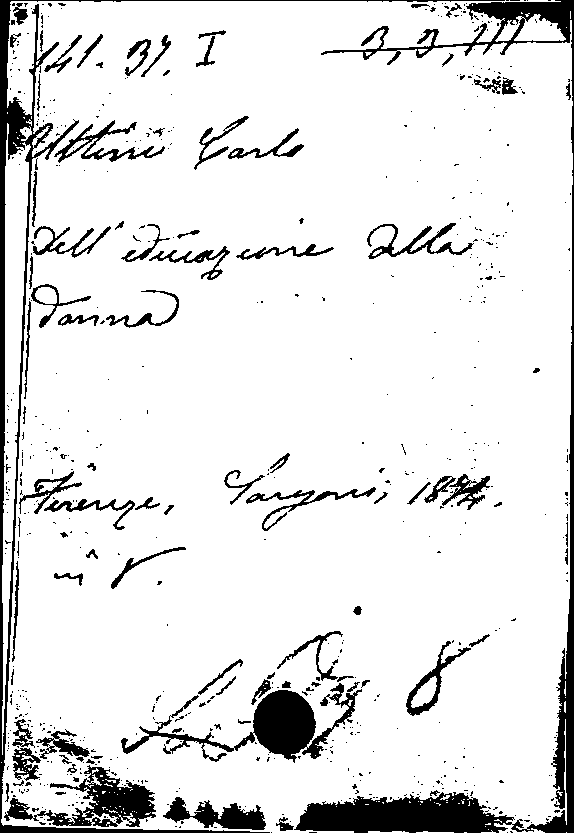 141. 37. I 3, 3, III
Uttini Carlo
Dell'educazione della
donna
Firenze, 1874.
in 8.
8